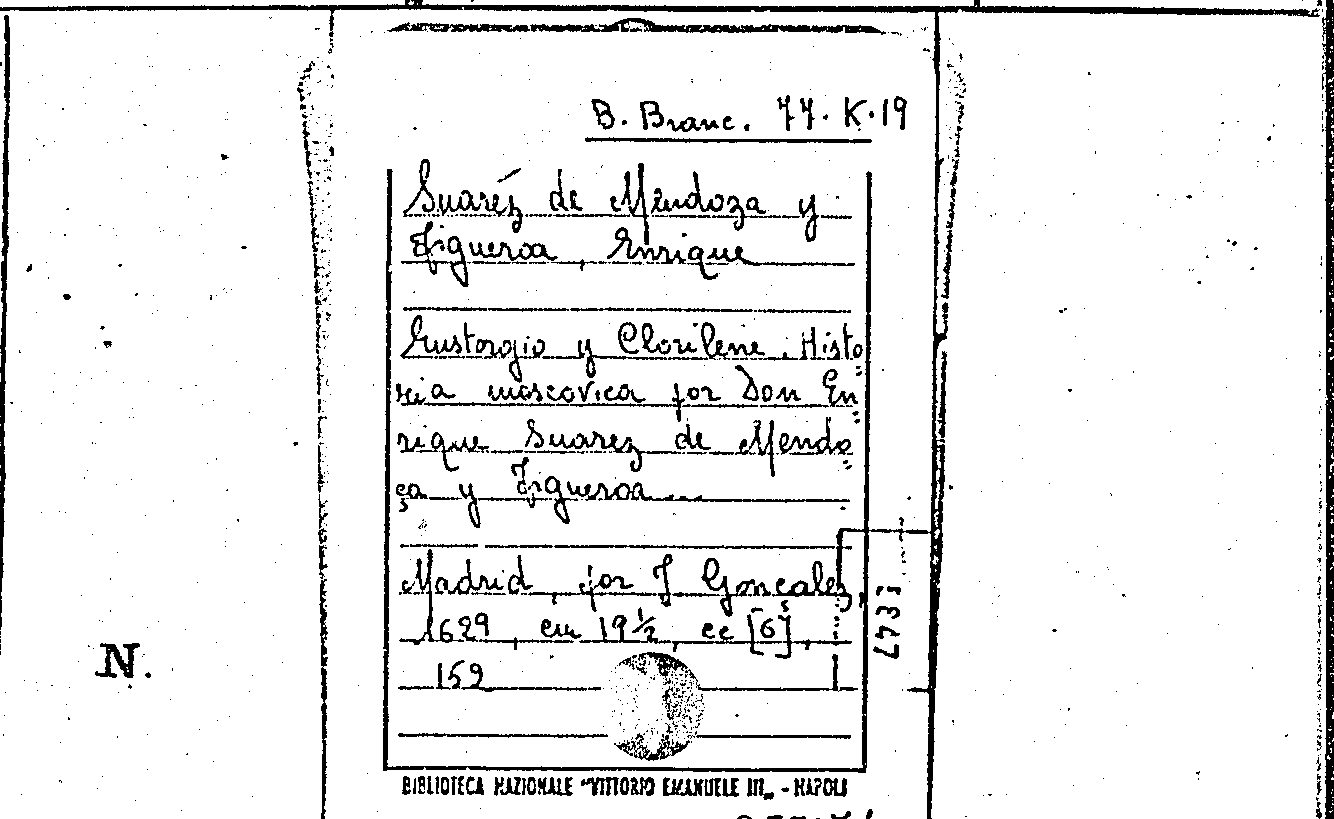 B. Branc. 77. K. 19
Suaréz de Mendoza y
Figueroa, Enrique
Eustorgio y Clorilene. Histo=
ria moscovica por Don En=
rique Suarez de Mendo=
ça y Figueroa....
Madrid, por J. Gonçalez,
1629, cm 19 1/2, cc [6],
159
N.
BIBLIOTECA NAZIONALE "VITTORIO EMANUELE III„ - NAPOLI